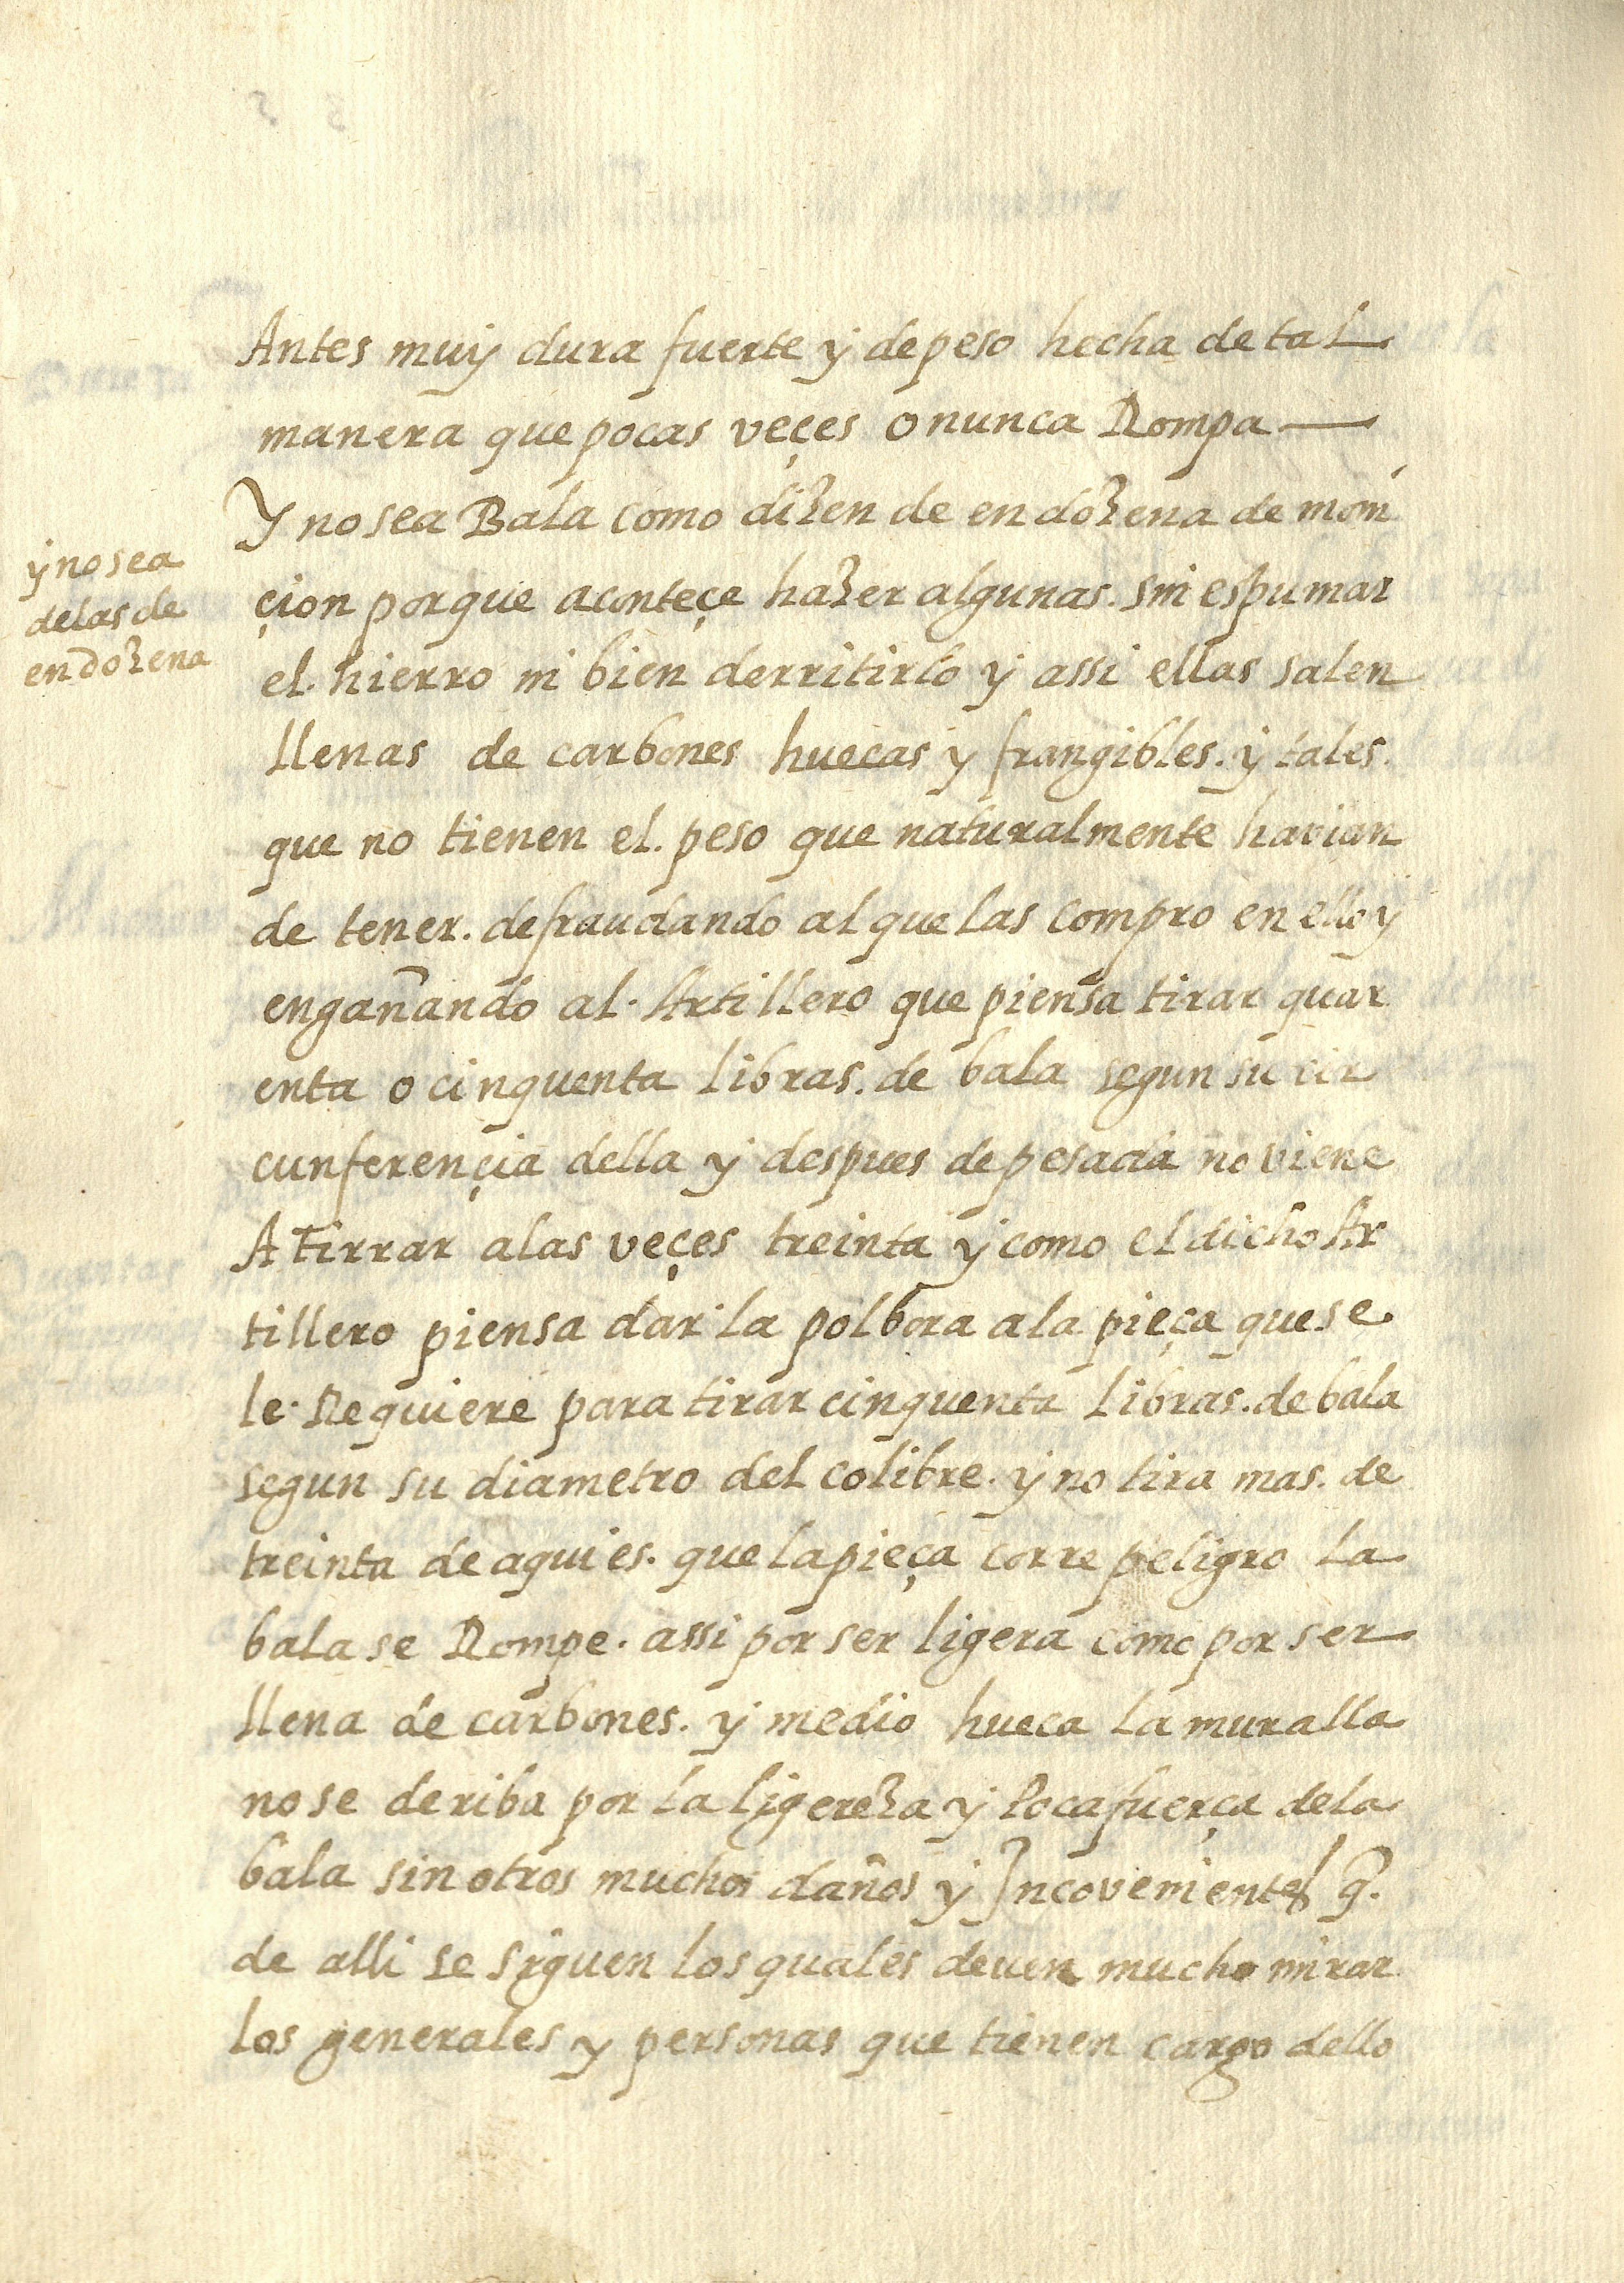 Antes muy dura fuerte y de peso hecha de tal
manera que pocas veçes o nunca Rompa —
Y no sea Bala como dizen de en dozena de moni
y no sea
delas de
en dozena
çion porque aconteçe hazer algunas. sin espumar
el. hierro ni bien derritirlo y assi ellas salen
llenas de carbones huecas y frangibles. y tales.
que no tienen el. peso que naturalmente havian
de tener. defraudando al que las compro en ello y
engañando al. Artillero que piensa tirar quar
enta o cinquenta libras. de bala segun su cir
cunferençia della y despues de pesada no viene
A tirrar alas veçes treinta y como el dicho Ar
tillero piensa dar la polbora ala pieça que se
le. Requiere para tirar cinquenta libras. de bala
segun su diametro del colibre. y no tira mas. de
treinta de aqui es. que la pieça corre peligro la
bala se Rompe. assi por ser ligera como por ser
llena de carbones. y medio hueca la muralla
no se deriba por la ligereza y poca fuerça dela
bala sin otros muchos daños y Incovenientes q.
de alli se siguen los quales deven mucho mirar
los generales y personas que tienen cargo dello